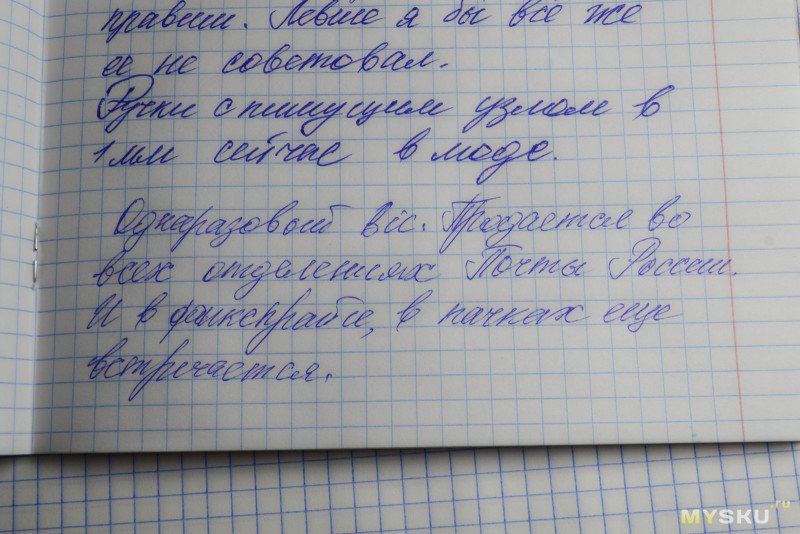 правши. Левше я бы все же
ее не советовал.
Ручки с пишущим узлом в
1мм сейчас в моде.
Одноразовый Bic. Продается во
всех отделениях Почты России.
И в фикспрайсе, в пачках еще
встречается.
MYSKU.ru